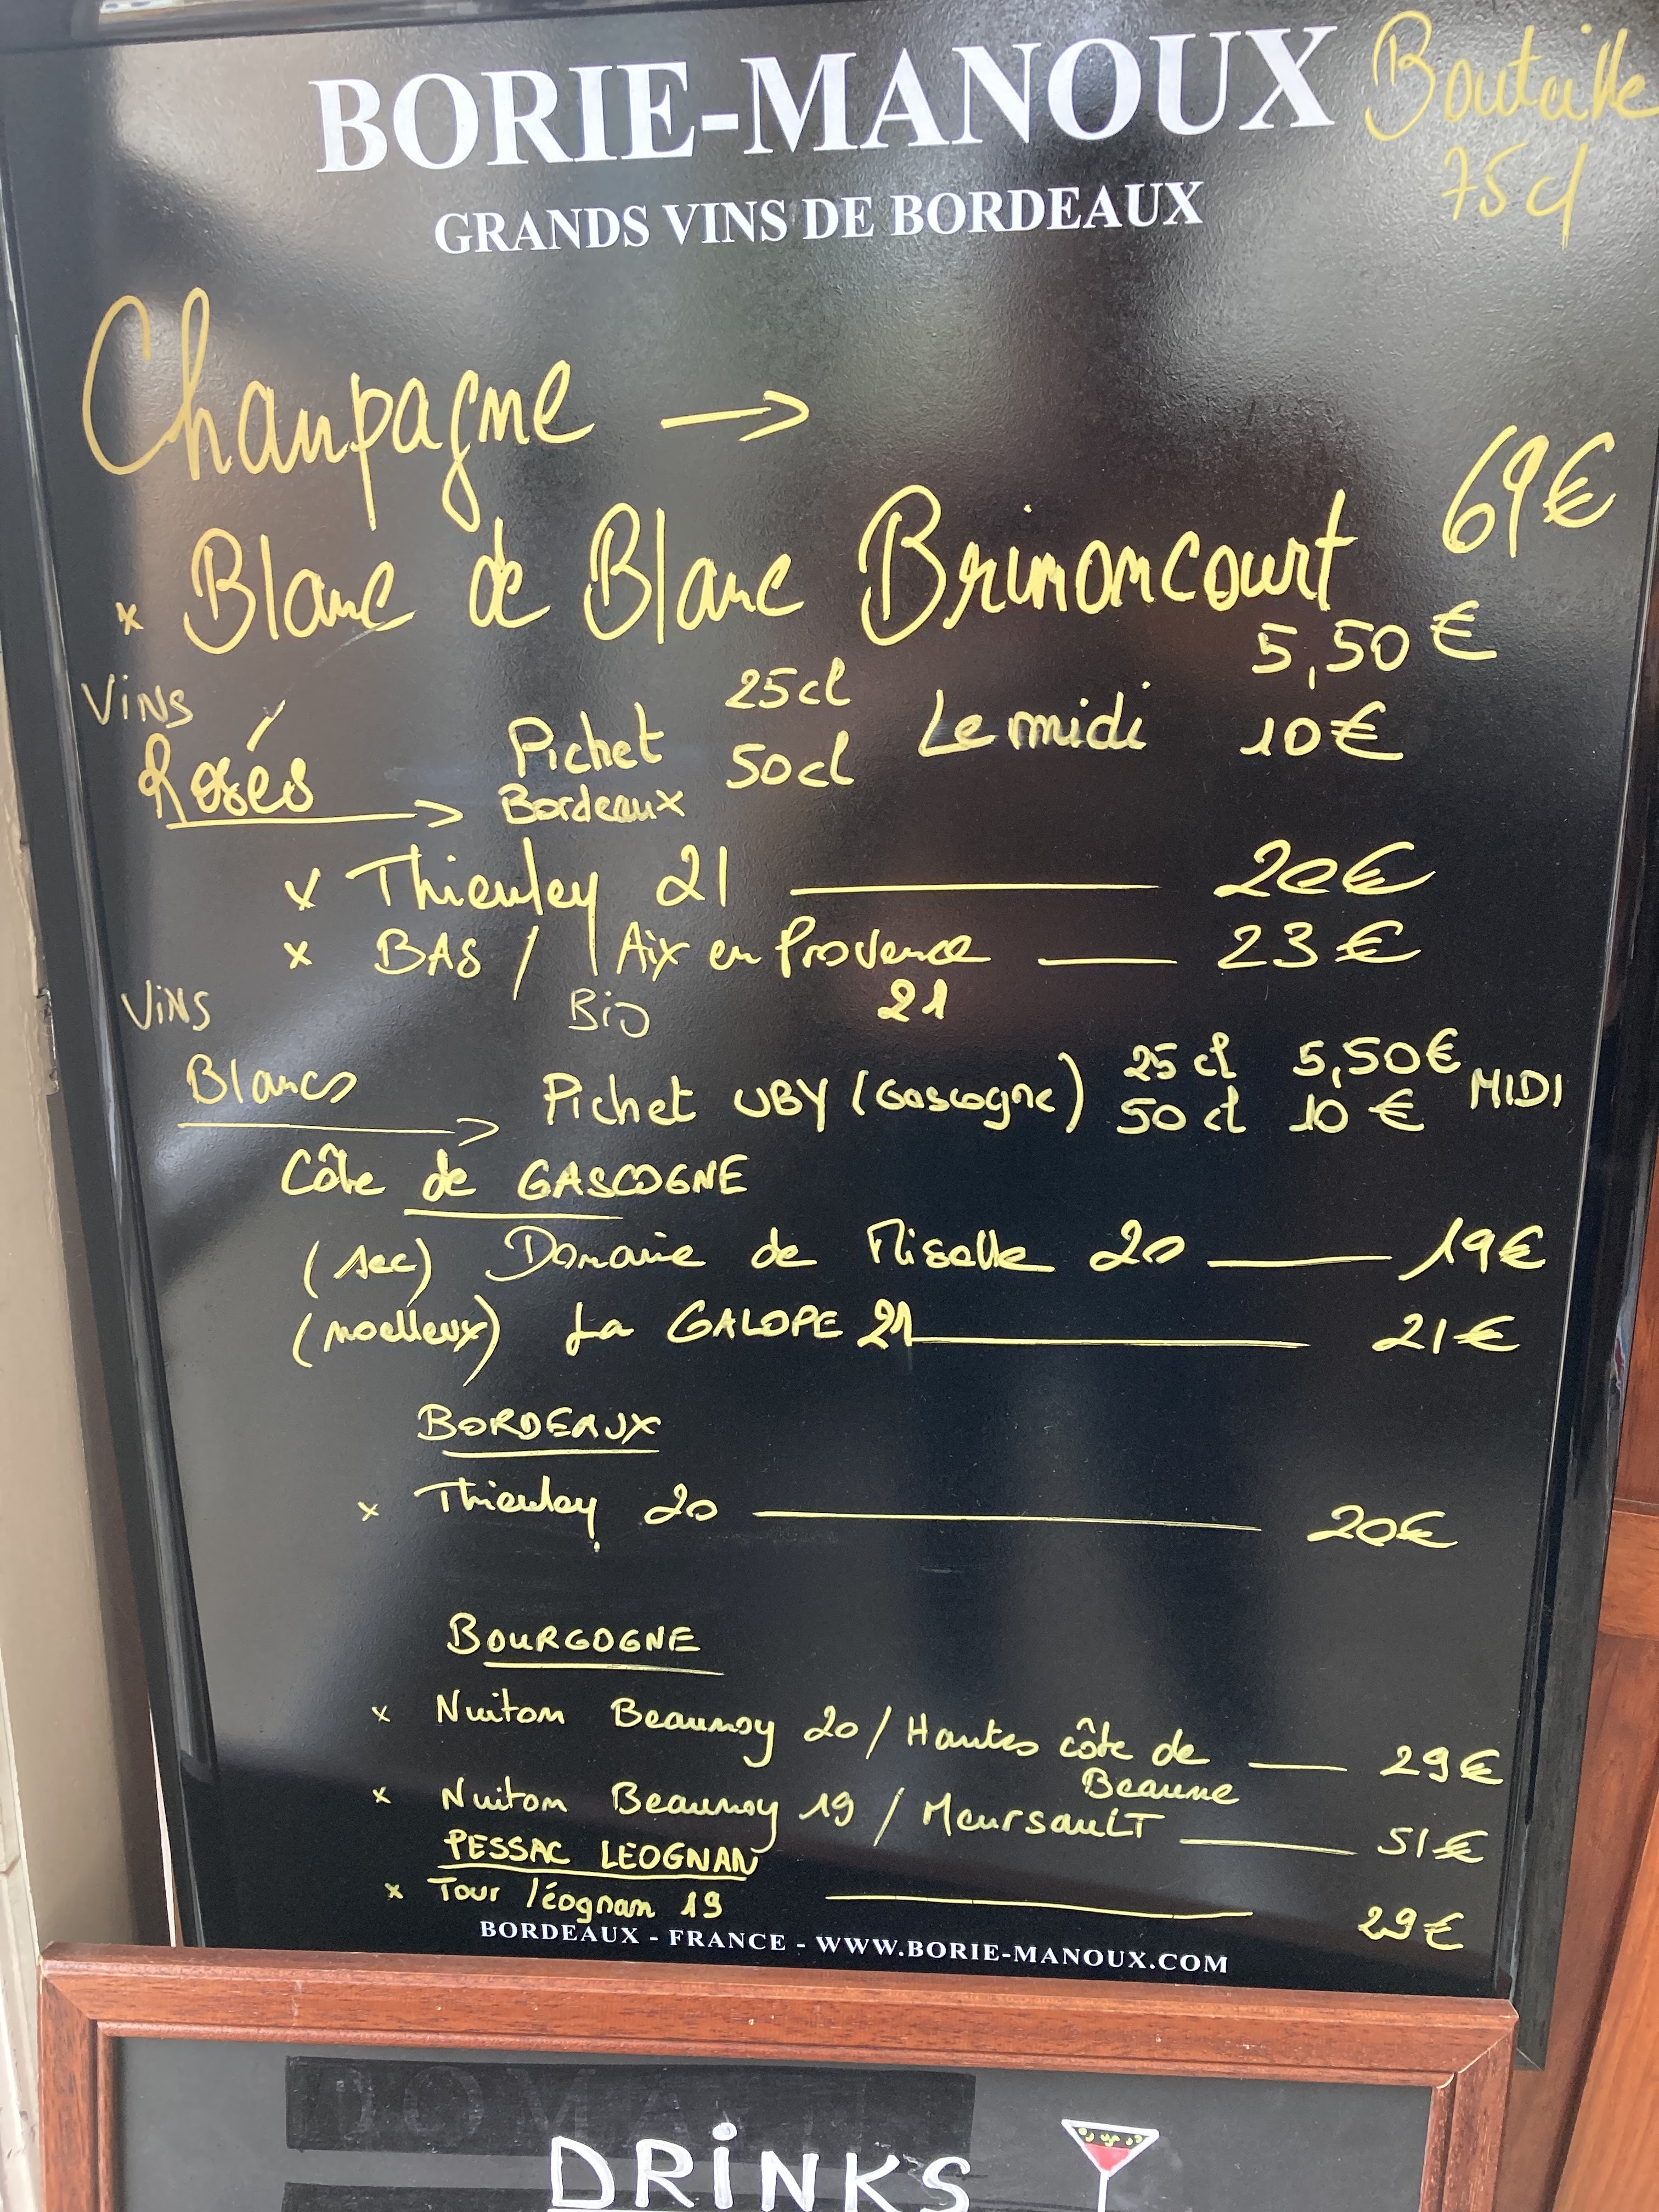 BORIE-MANOUX
Boutaille
75cl
GRANDS VINS DE BORDEAUX
Champagne →
69€
x Blanc de Blanc Brimoncourt
Vins
Rosés
Pichet 25cl Le midi 5,50€
50cl 10€
Bordeaux
x Thieuley 21 20€
x BAS / Aix en Provence 23€
Bio 21
Vins
Blancs
Pichet UBY (Gascogne) 25cl 5,50€ MIDI
50cl 10€
Côte de GASCOGNE
(sec) Domaine de Miselle 20 19€
(moelleux) La GALOPE 21 21€
BORDEAUX
x Thieuley 20 20€
BOURGOGNE
x Nuiton Beaunoy 20 / Hautes côte de 29€
Beaune
x Nuiton Beaunoy 19 / MeursaulT 51€
PESSAC LEOGNAN
x Tour léognan 19 29€
BORDEAUX - FRANCE - WWW.BORIE-MANOUX.COM
DRiNKS